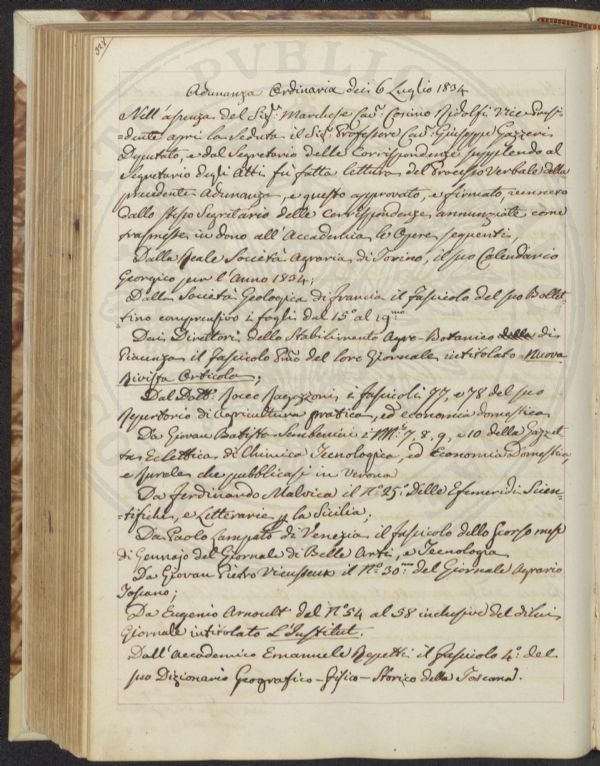 328
Adunanza Ordinaria dei 6 Luglio 1834
Nell'assenza del Sig.r Marchese Cav. Cosimo Ridolfi Vice-Presi-
=dente aprì la seduta il Sig.r Professore Cav. Giuseppe Gazzeri
Deputato, e dal Segretario delle Corrispondenze supplendo al
Segretario degli Atti fù fatta lettura del Processo Verbale della
precedente Adunanza, e questo approvato, e firmato, vennero
dallo stesso Segretario delle Corrispondenze annunziate come
trasmesse in dono all'Accademia le Opere seguenti,
Dalla Reale Società Agraria di Torino, il suo Calendario
Georgico per l'Anno 1834;
Dalla Società Geologica di Francia il fascicolo del suo Bollet-
=tino comprensivo i fogli dal 15° al 19mo
Dai Direttori dello Stabilimento Agro-Botanico della di
Piacenza il fascicolo del loro Giornale intitolato Nuova
Rivista Orticola;
Dal Dott. Rocco Ragazzoni, i fascicoli 77, e 78 del suo
Repertorio di Agricoltura pratica, ed economia domestica
Da Giovan Batista Sembenini i N.i 7, 8, 9, e 10 della Gazzet-
ta Eclettica di Chimica Tecnologica, ed Economia Domestica,
e Rurale che pubblicasi in Verona
Da Ferdinando Malvica il N° 25 delle Efemeridi Scien-
=tifiche, e Letterarie p la Sicilia;
Da Paolo Lampato di Venezia il fascicolo dello scorso mese
di Gennajo del Giornale di Belle Arti, e Tecnologia
Da Giovan Pietro Vieusseux il N° 30 del Giornale Agrario
Toscano;
Da Eugenio Arnoult dal N° 54 al 58 inclusive del di lui
Giornale intitolato L'Institut.
Dall'Accademico Emanuele Repetti il fascicolo 4° del
suo Dizionario Geografico-fisico-Storico della Toscana.